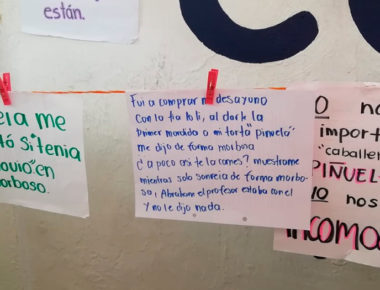 están.
eia me
tó Si tenia
ovio" en
orboso.
Fui a comprar mi desayuno
Con la tia loli, al darle la
Primer mordida a mi torta "piñuelo"
me dijo de forma morbosa
¿a poco asi te la comes? muestrame
mientras solo sonreia de forma morbo-
so, Abraham el profesor estaba con el
Y no le dijo nada.
O no
import
"caballe
PIÑUEL
O nos
incomo